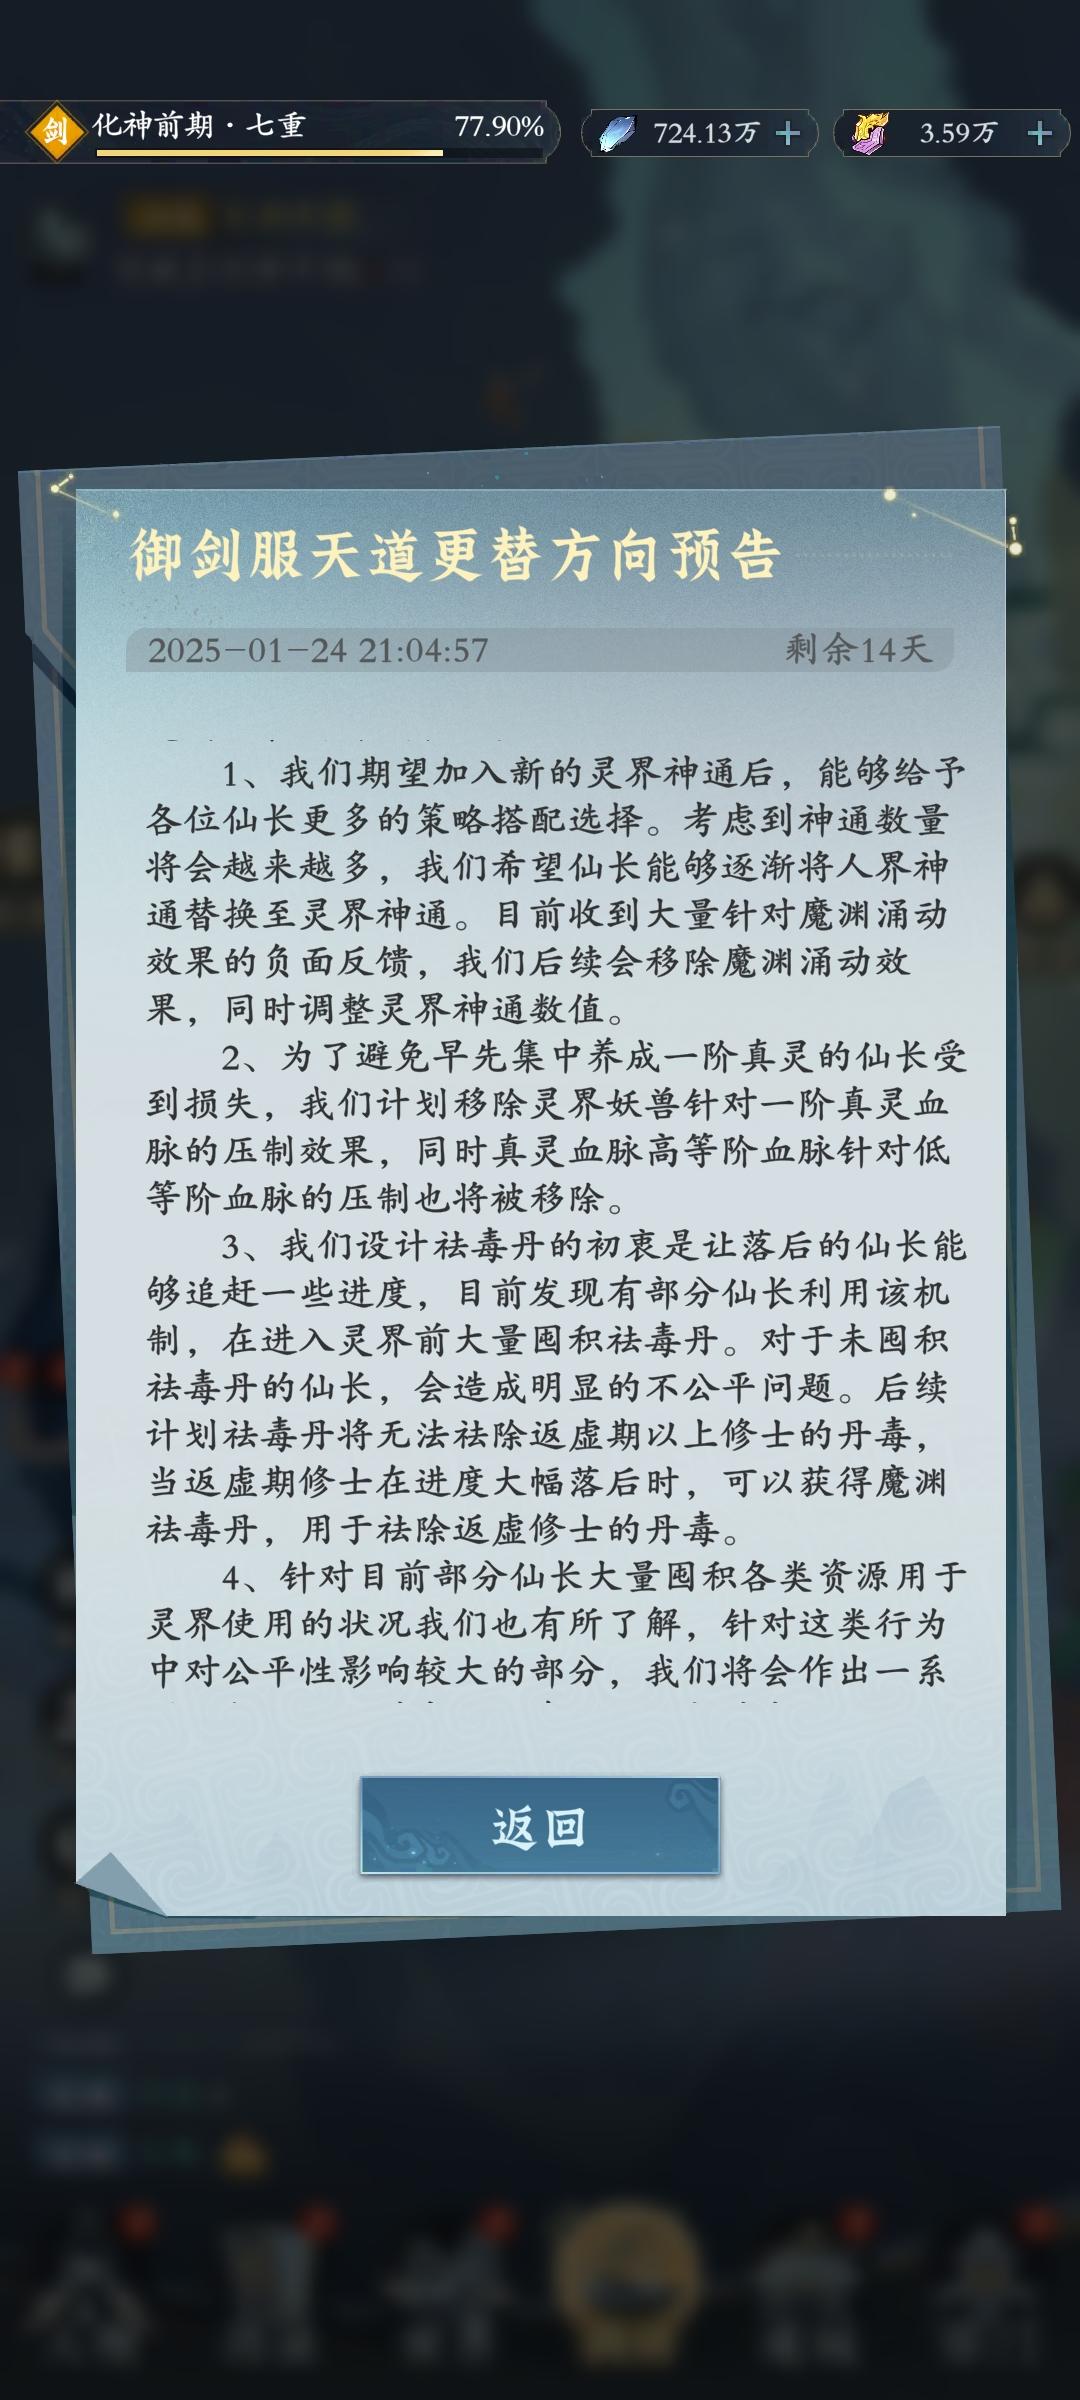 剑 化神前期·七重 77.90% 724.13万 3.59万
御剑服天道更替方向预告
2025-01-24 21:04:57 剩余14天
1、我们期望加入新的灵界神通后，能够给予
各位仙长更多的策略搭配选择。考虑到神通数量
将会越来越多，我们希望仙长能够逐渐将人界神
通替换至灵界神通。目前收到大量针对魔渊涌动
效果的负面反馈，我们后续会移除魔渊涌动效
果，同时调整灵界神通数值。
2、为了避免早先集中养成一阶真灵的仙长受
到损失，我们计划移除灵界妖兽针对一阶真灵血
脉的压制效果，同时真灵血脉高等阶血脉针对低
等阶血脉的压制也将被移除。
3、我们设计祛毒丹的初衷是让落后的仙长能
够追赶一些进度，目前发现有部分仙长利用该机
制，在进入灵界前大量囤积祛毒丹。对于未囤积
祛毒丹的仙长，会造成明显的不公平问题。后续
计划祛毒丹将无法祛除返虚期以上修士的丹毒，
当返虚期修士在进度大幅落后时，可以获得魔渊
祛毒丹，用于祛除返虚修士的丹毒。
4、针对目前部分仙长大量囤积各类资源用于
灵界使用的状况我们也有所了解，针对这类行为
中对公平性影响较大的部分，我们将会作出一系
返回